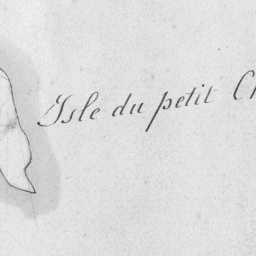 Isle du petit